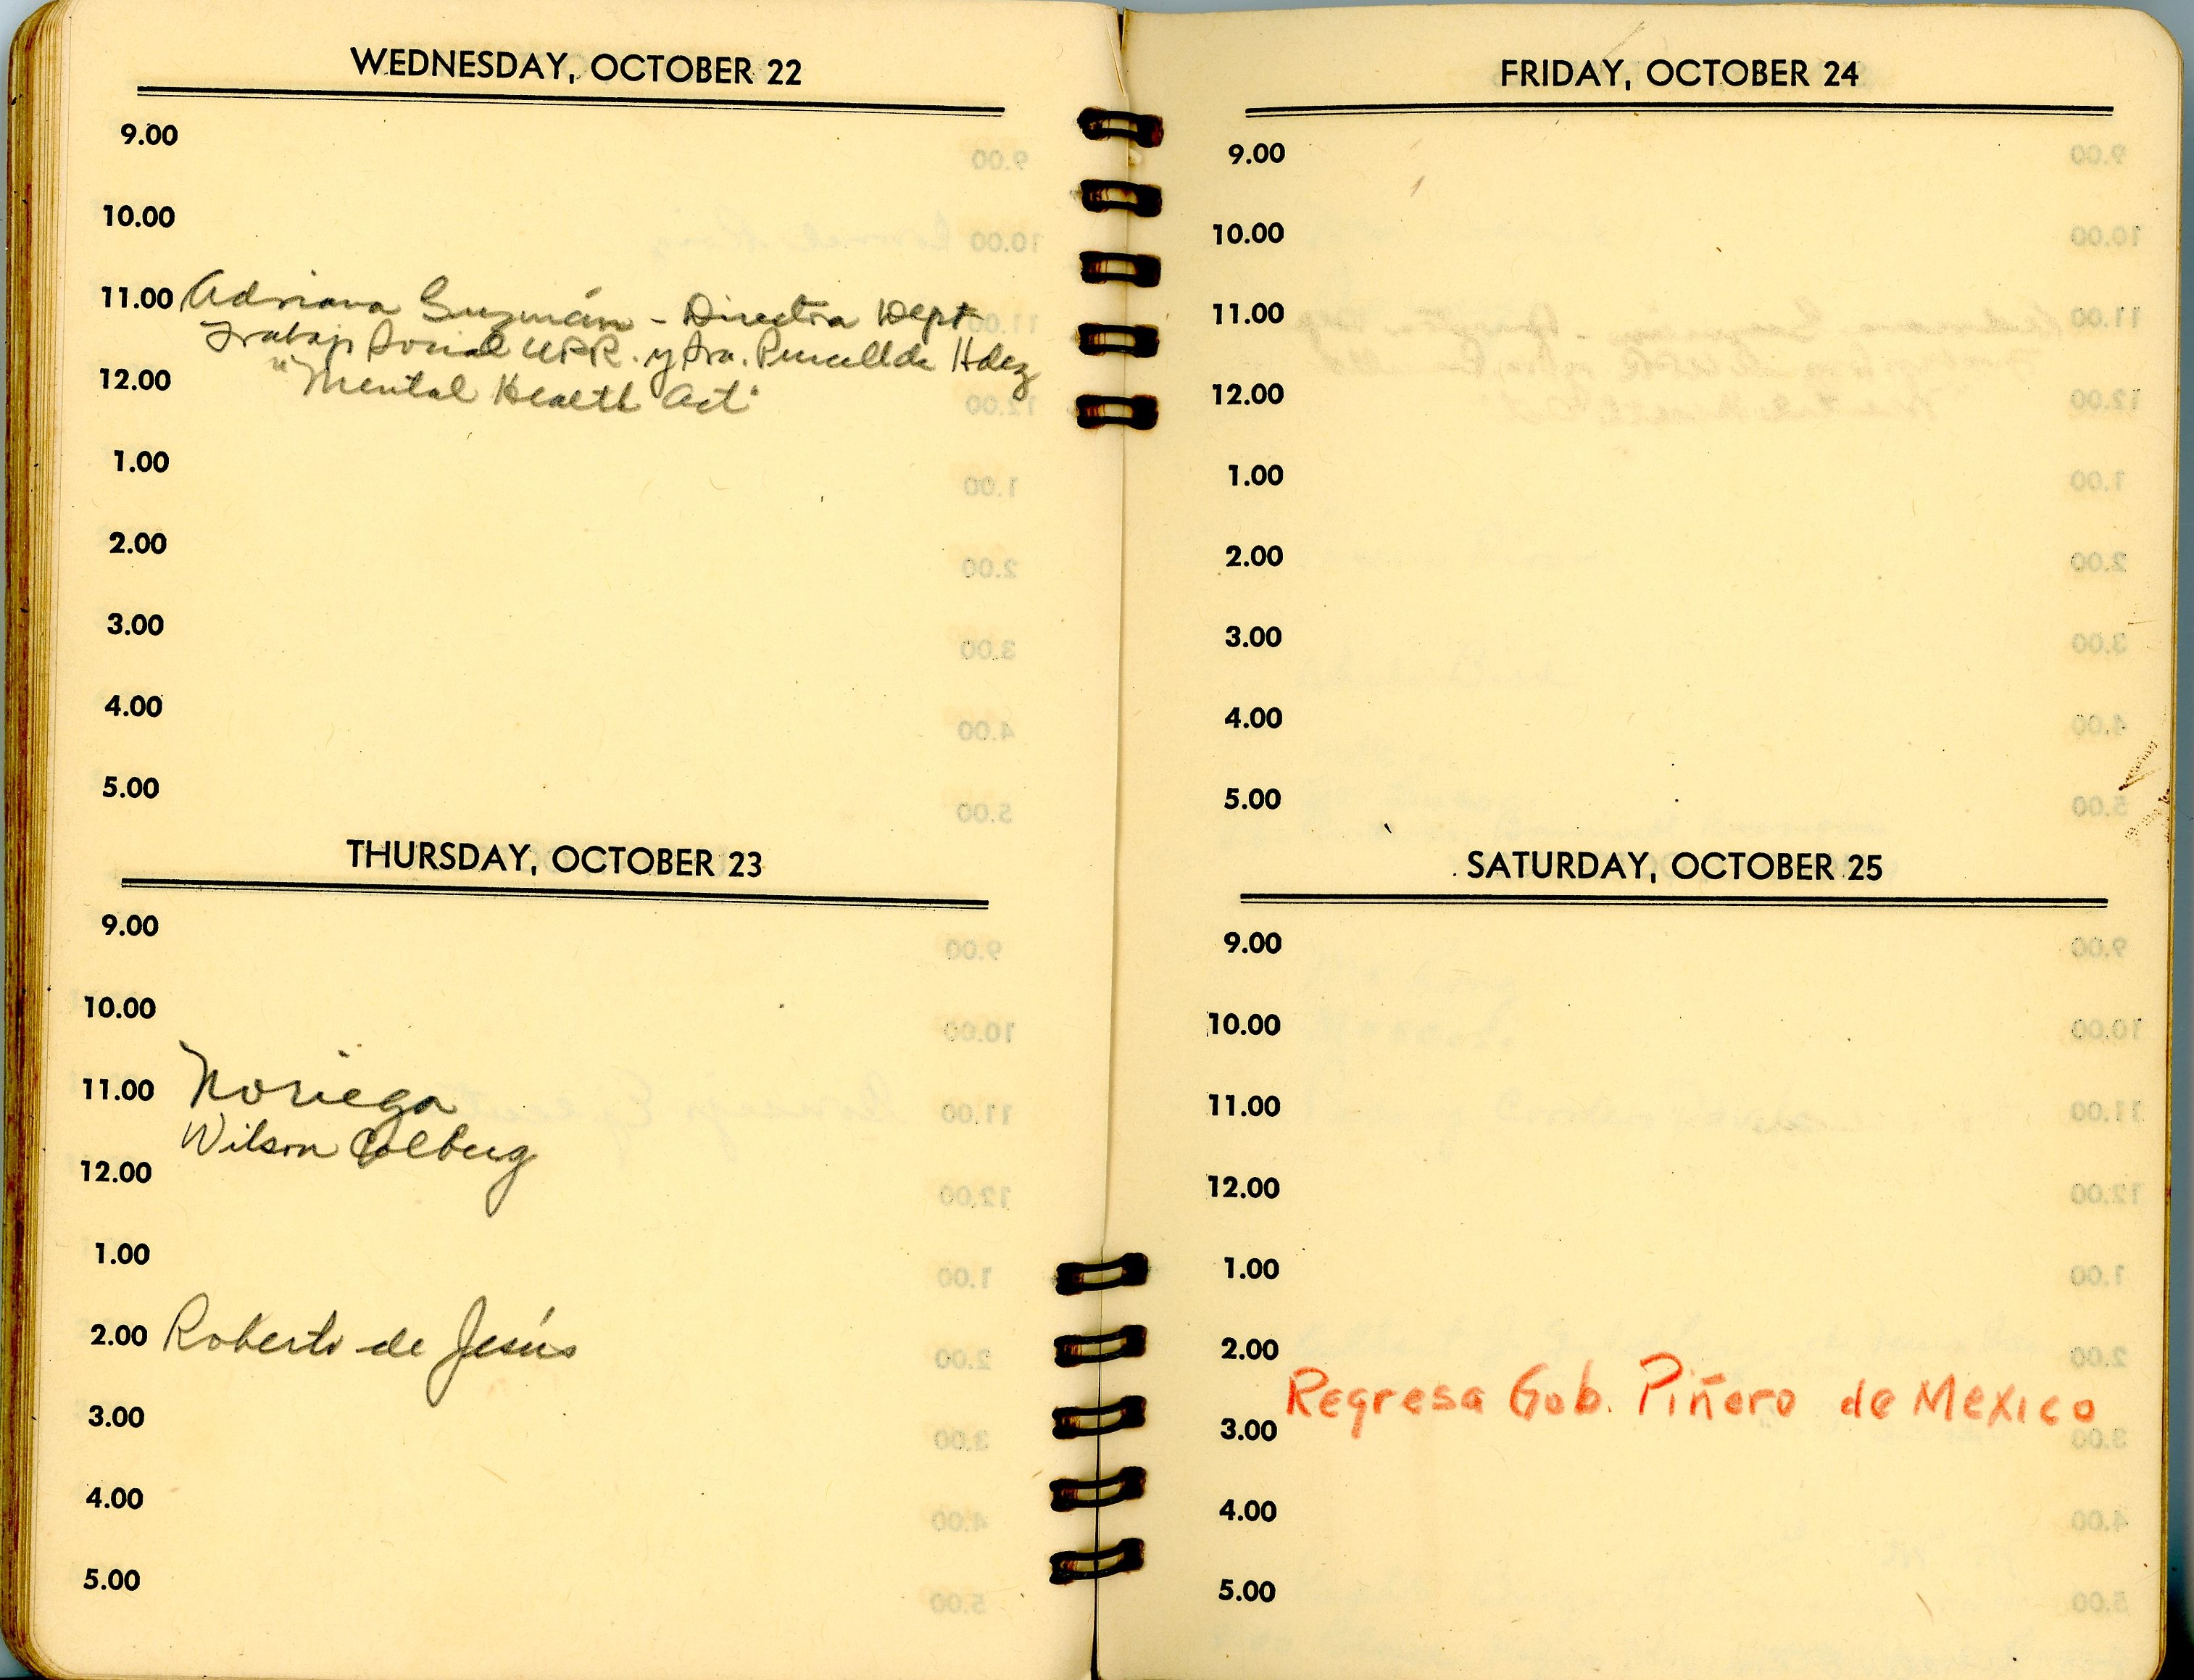 WEDNESDAY, OCTOBER 22
9.00
10.00
11.00 Adriana Guzmán - Directra Dept
Trabajo Social UPR. y Sra. Purcell de Hdez
12.00 "Mental Health Act"
1.00
2.00
3.00
4.00
5.00
THURSDAY, OCTOBER 23
9.00
10.00
11.00 Noriega
Wilson Colberg
12.00
1.00
2.00 Roberto de Jesús
3.00
4.00
5.00
FRIDAY, OCTOBER 24
9.00
10.00
11.00
12.00
1.00
2.00
3.00
4.00
5.00
SATURDAY, OCTOBER 25
9.00
10.00
11.00
12.00
1.00
2.00
Regresa Gob. Piñero de Mexico
3.00
4.00
5.00